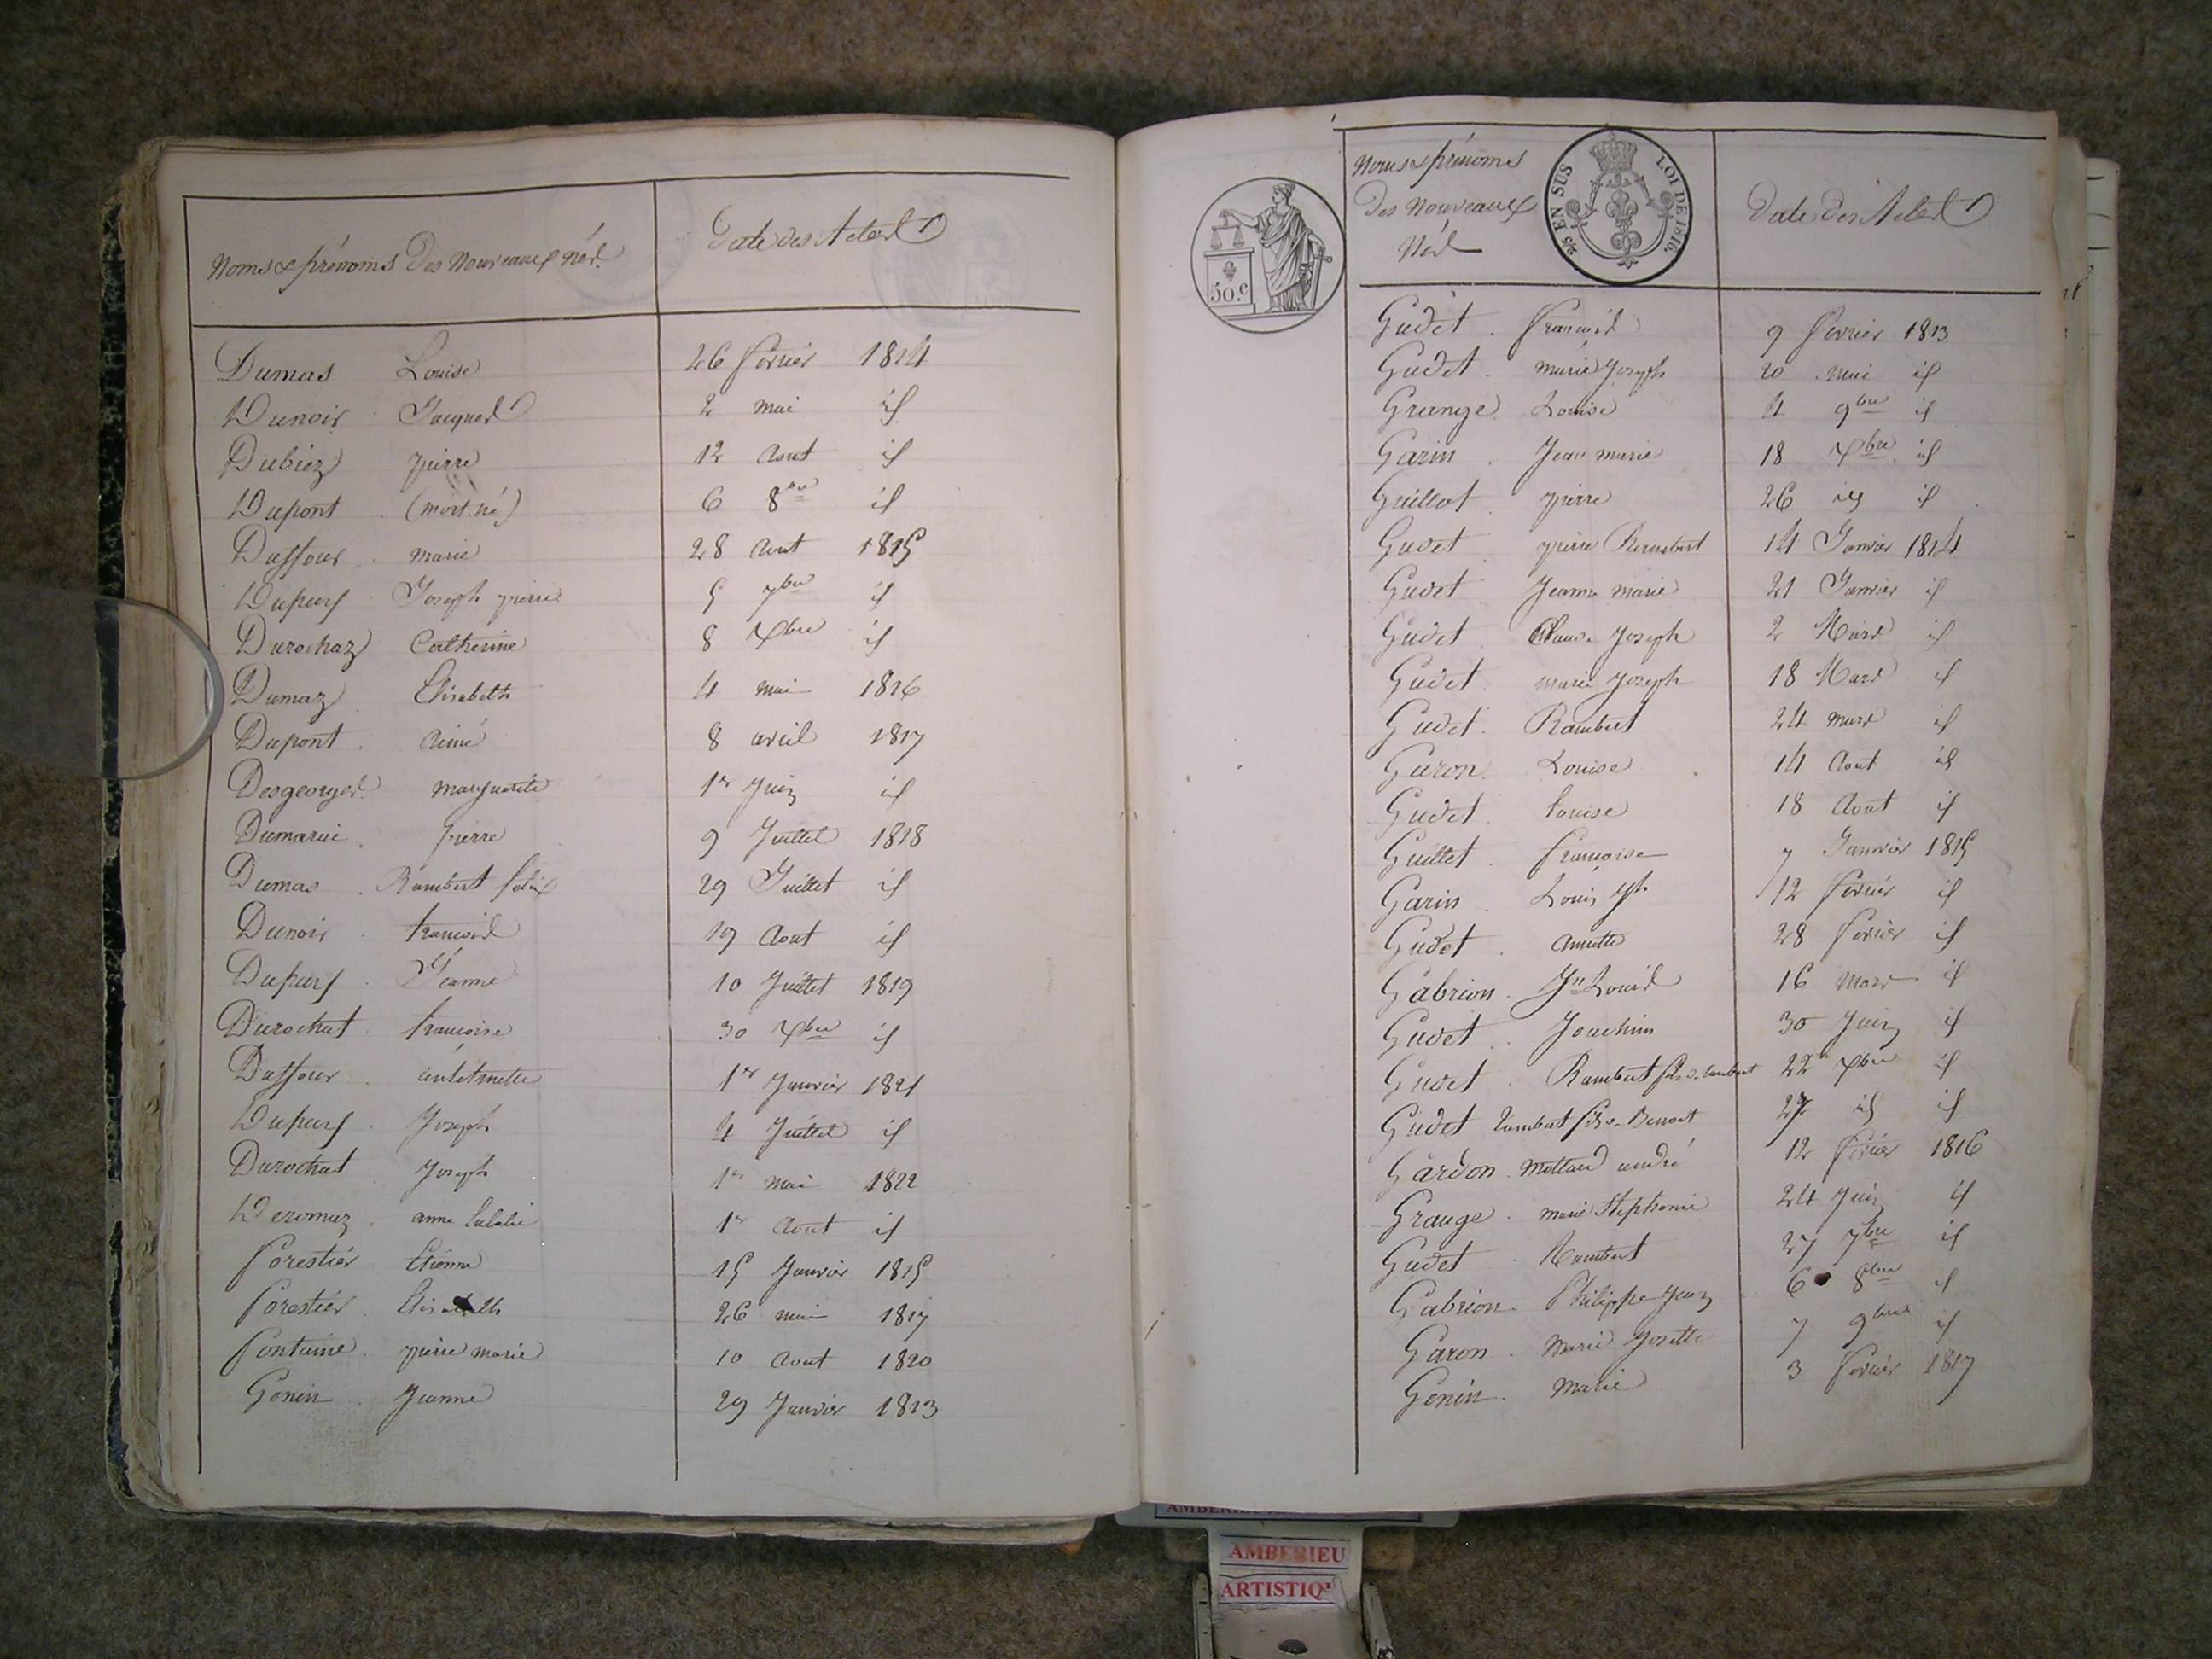 Noms & prénoms Des Nouveaux nés.
Date des Actes
Dumas Louise 26 février 1814
Dunoir Jacques 2 mai id
Dubiez pierre 12 Aout id
Dupont (mort-né) 6 8bre id
Duffour marie 28 Aout 1815
Dupuis Joseph pierre 5 7bre id
Durochaz Catherine 8 Xbre id
Dumaz Elisabeth 4 mai 1816
Dupont Aimé 8 avril 1817
Desgeorges Marguerite 1er Juin id
Dumarié pierre 9 Juillet 1818
Dumas Rambert félix 29 Juillet id
Dunoir françois 19 Aout id
Dupuis Jeanne 10 Juillet 1819
Durochat françoise 30 Xbre id
Duffour 1er Janvier 1821
Dupuis Joseph 4 Juillet id
Durochat Joseph 1er mai 1822
anne Eulalie 1er Aout id
forestier Etienne 15 Janvier 1815
forestier Elisabeth 26 mai 1817
fontaine pierre marie 10 Aout 1820
Genin Jeanne 29 Janvier 1813
50.c
Noms & prénoms
des Nouveaux
Nés
25 EN SUS LOI DE 1816.
Date des Actes
Gudet françois 9 février 1813
Gudet marie Joseph 20 mai id
Grange Louise 4 9bre id
Garin Jean marie 18 Xbre id
Guillot pierre 26 id id
Gudet pierre Rambert 14 Janvier 1814
Gudet Jeanne marie 21 Janvier id
Gudet Claude Joseph 2 Mars id
Gudet marie Joseph 18 Mars id
Gudet Rambert 24 mars id
Garon Louise 14 Aout id
Gudet louise 18 Aout id
Guillet françoise 7 Janvier 1815
Garin Louis Jph 12 février id
Gudet Annette 28 février id
Gabrion Jn Louis 16 Mars id
Gudet Joachim 30 Juin id
Gudet Rambert fils de Lambert 22 Xbre id
Gudet Rambert fils de Benoit 27 id id
Gardon Mottard andré 12 février 1816
Grange marie Stephanie 24 Juin id
Gudet Rambert 27 7bre id
Gabrion Philippe Jean 6 8bre id
Garon Marie Josette 7 9bre id
Genin Marie 3 février 1817
AMBERIEU
ARTISTIQ